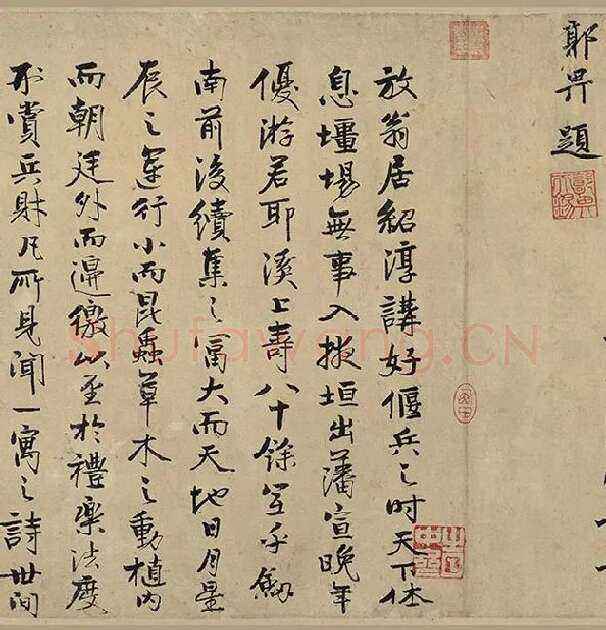 郭畀題
放翁居紹淳講好偃兵之時天下休
息壃場無事入掖垣出藩宣晚年
優游若耶溪上壽八十餘宜乎劒
南前後續集之富大而天地日月星
辰之運行小而昆蟲草木之動植內
而朝廷外而邊徼以至於禮樂法度
形賞兵財凡所見聞一寓之詩世間
shufawang.CN